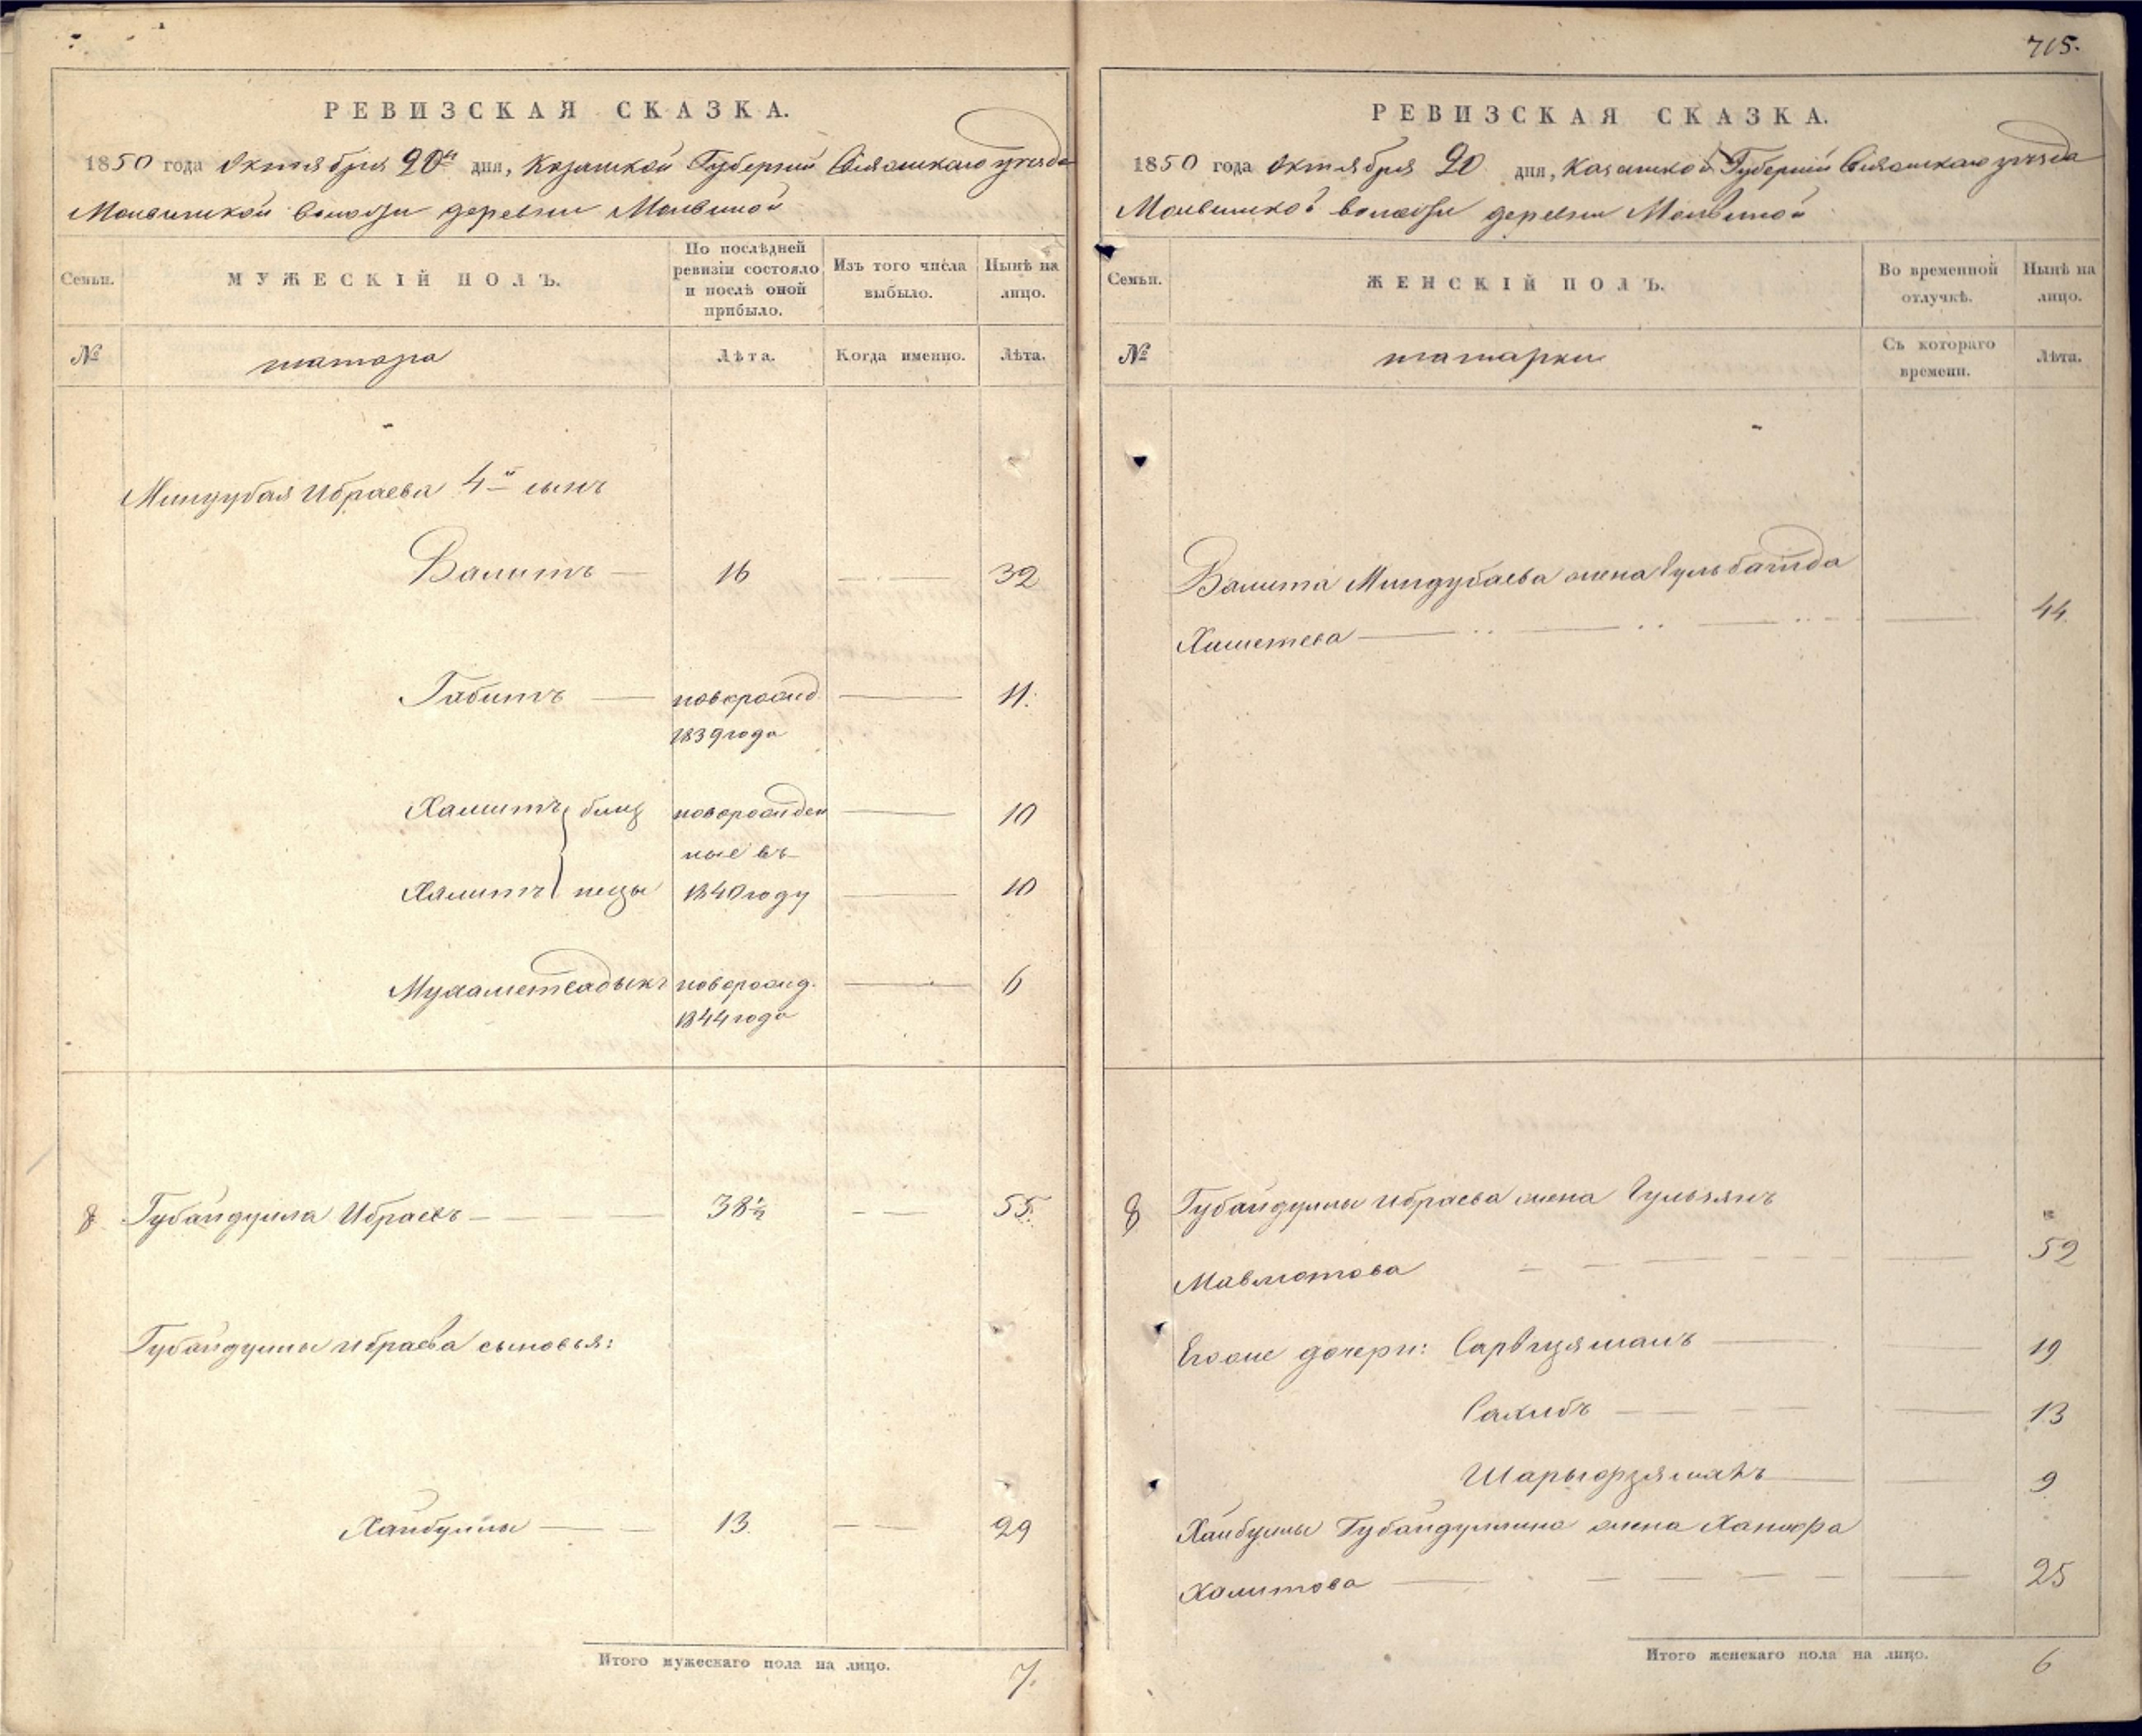 РЕВИЗСКАЯ СКАЗКА.
1850 года Октября 20го дня, Казанской Губерніи Свіяжскаго уезда
Молвинской волости деревни Молвиной
Семьи.
МУЖЕСКІЙ ПОЛЪ.
По послѣдней ревизіи состояло и послѣ оной прибыло.
Изъ того числа выбыло.
Нынѣ на лицо.
№
татара
Лѣта.
Когда именно.
Лѣта.
Миндубая Ибраева 4й сынъ
Валитъ — 16 — 32
Габитъ — новорожд. — 11.
1839 года
Хамитъ близ новорожден — 10
ные въ
Халитъ нецы 1840 году — 10
Мухаметсадыкъ новорожд. — 6
1844 года
8 Губайдулла Ибраевъ — 38½ — 55.
Губайдуллы Ибраева сыновья:
Хайбуллы — 13. — 29
Итого мужескаго пола на лицо. 7.
715.
РЕВИЗСКАЯ СКАЗКА.
1850 года Октября 20 дня, Казанской Губерніи Свіяжскаго уезда
Молвинской волости деревни Молвиной
Семьи.
ЖЕНСКІЙ ПОЛЪ.
Во временной отлучкѣ.
Нынѣ на лицо.
№
татарки
Съ котораго времени.
Лѣта.
Валита Миндубаева жена
— 44.
8 Губайдуллы Ибраева жена Гульзянъ
Мавлютова — 52
Егоже дочери: — 19
Сахибъ — 13
— 9
Хайбуллы Губайдуллина жена Ханифа
Халитова — 25
Итого женскаго пола на лицо. 6